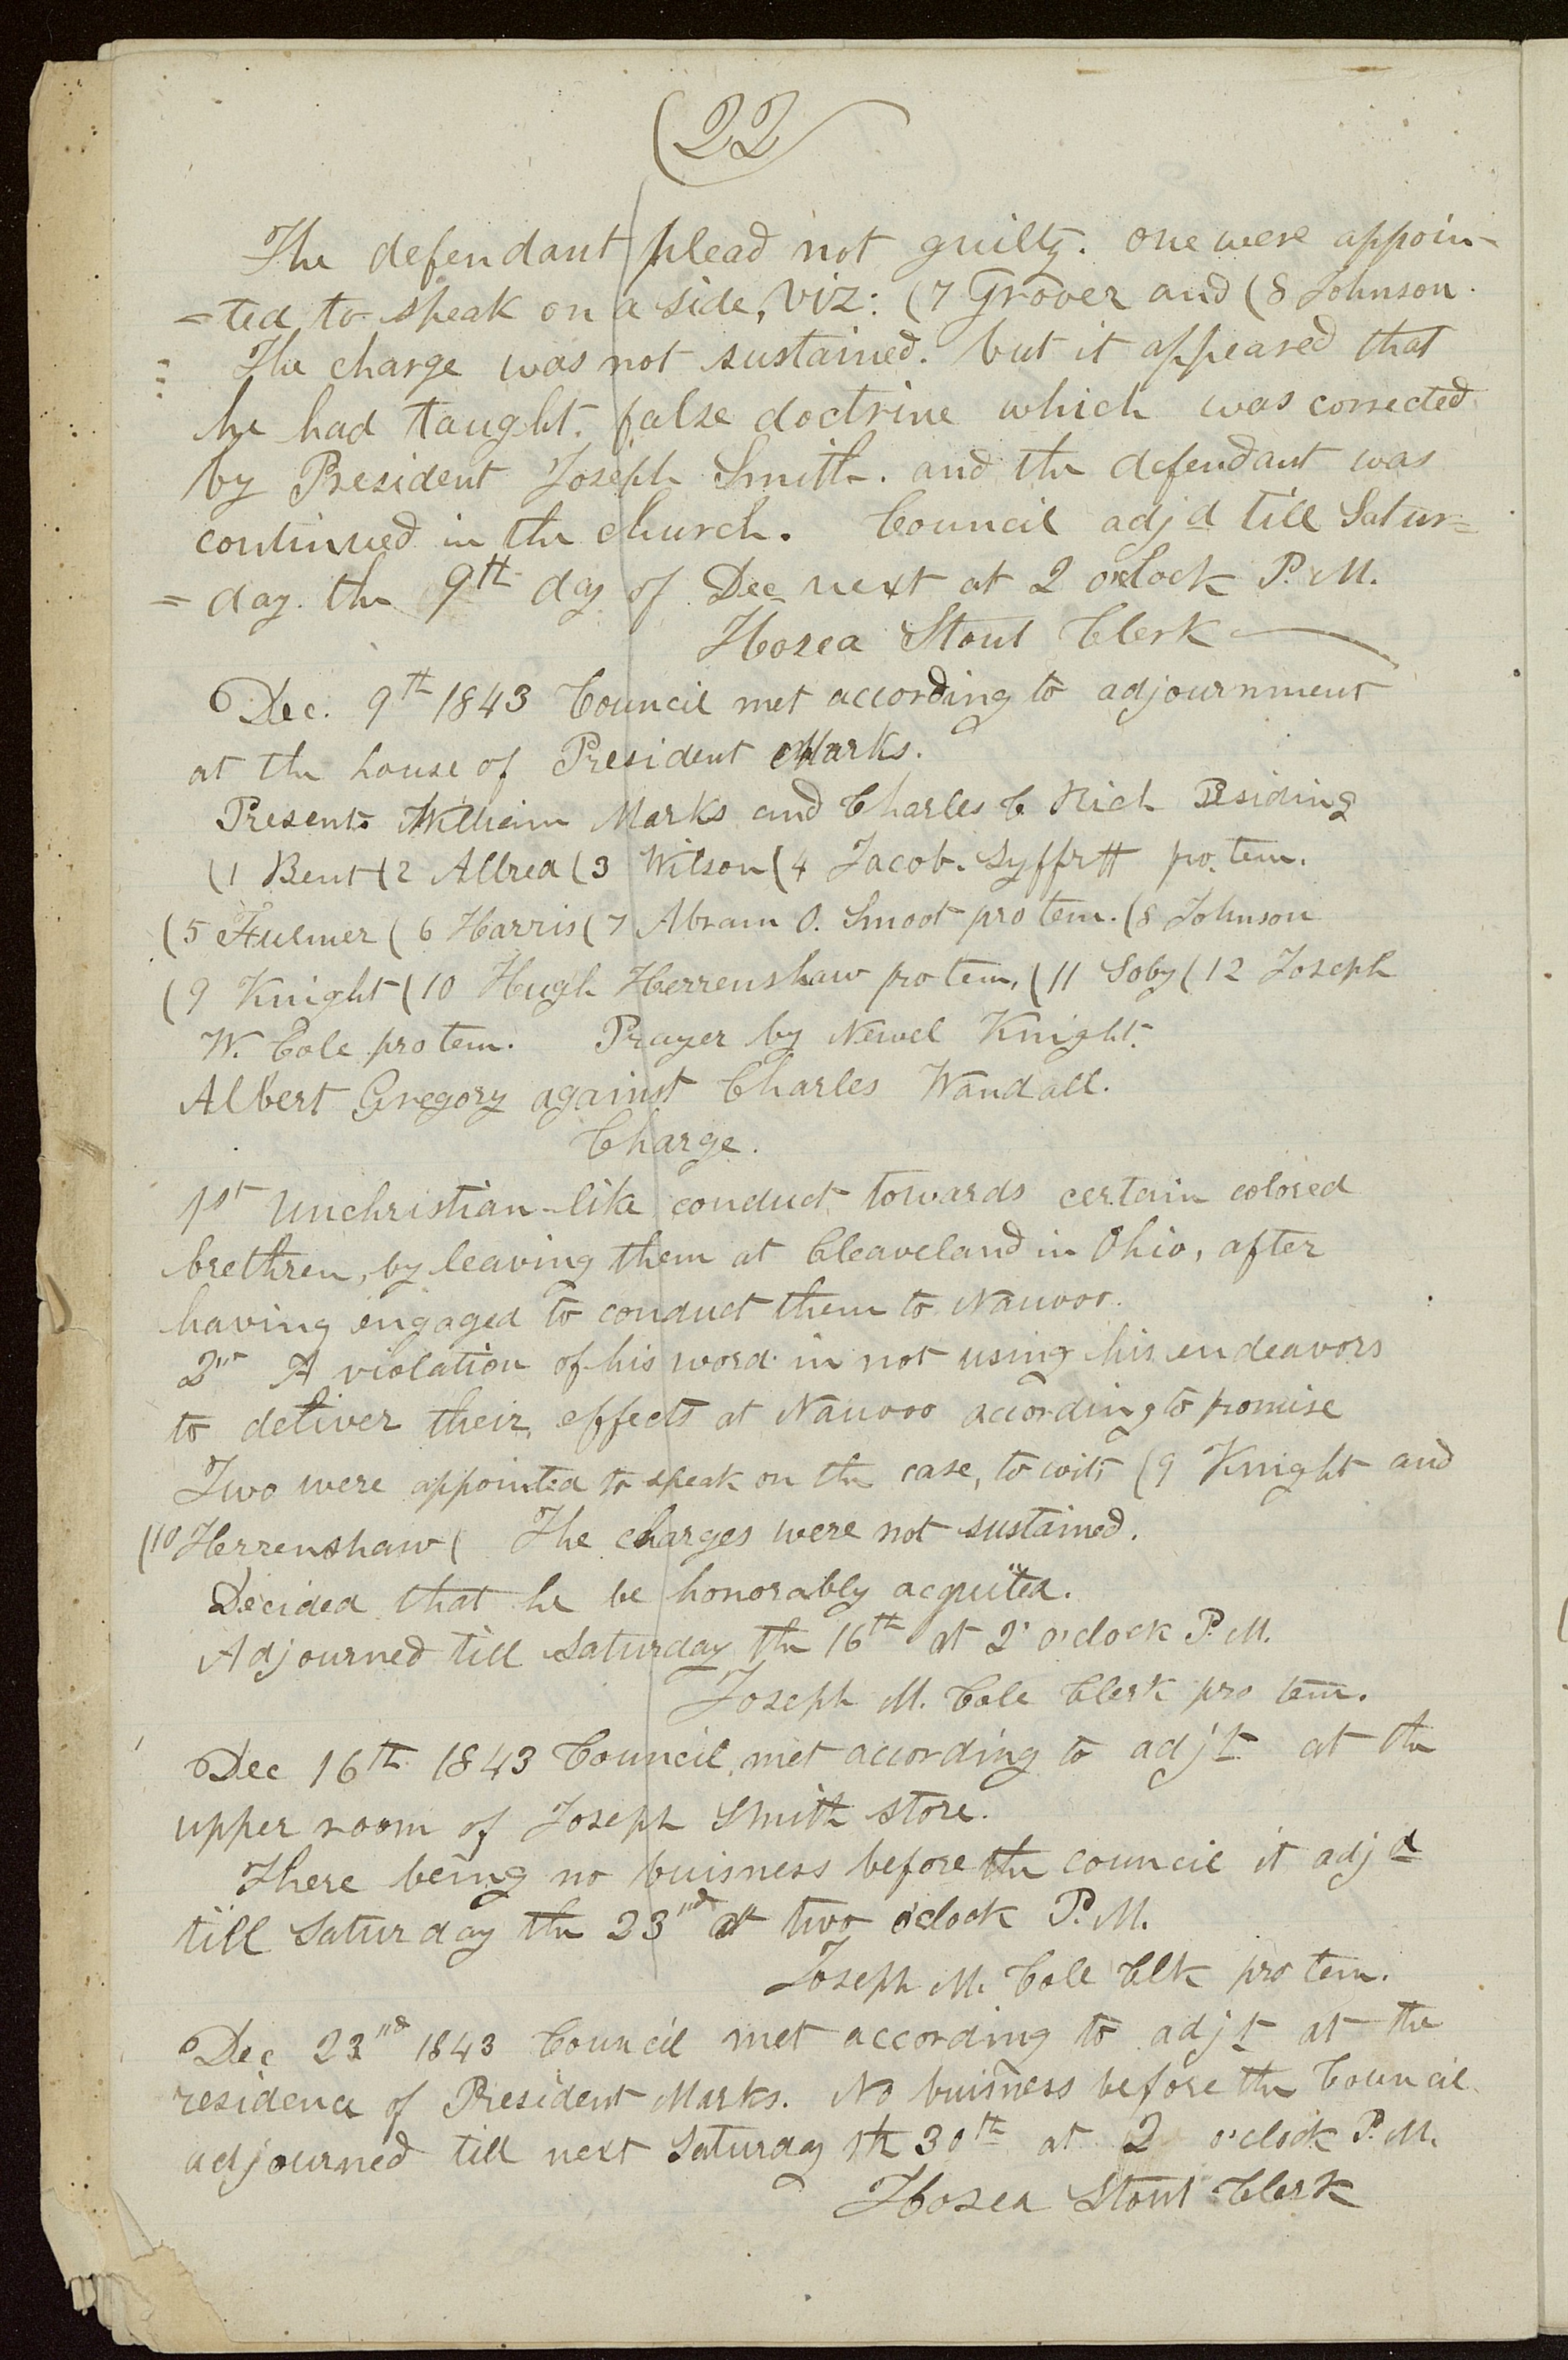 (22
The defendant plead not guilty. one were appoin-
=ted to speak on a side, viz: (7 Grover and (8 Johnson.
The charge was not sustained. but it appeared that
he had taught. false doctrine which was corrected
by President Joseph Smith. and the defendant was
continued in the church. Council adjd till Satur=
=day. the 9th day of Dec next at 2 oclock P.M.
Hosea Stout Clerk
Dec. 9th 1843 Council met according to adjournment
at the house of President Marks.
Present William Marks and Charles C. Rich Presiding
(1 Bent (2 Allred (3 Wilson (4 Jacob. Syffrtt pro. tem.
(5 Fulmer (6 Harris (7 Abram O. Smoot pro tem. (8 Johnson
(9 Knight (10 Hugh Herrenshaw pro tem, (11 Soby (12 Joseph
W. Cole pro tem. Prayer by Newel Knight.
Albert Gregory against Charles Wandall.
Charge.
1st Unchristian-like conduct towards certain colored
brethren, by leaving them at Cleaveland in Ohio, after
having engaged to conduct them to Nauvoo.
2nd A violation of his word in not using his endeavors
to deliver their effects at Nauvoo according to promise
Two were appointed to speak on the case, to wit; (9 Knight and
(10 Herrenshaw ( The charges were not sustained.
Decided that he be honorably acquited.
Adjourned till Saturday the 16th at 2 o'clock P.M.
Joseph M. Cole Clerk pro tem.
Dec 16th 1843 Council met according to adjt at the
upper room of Joseph Smith store.
There being no buisness before the council it adjd
till Saturday the 23nd at two o'clock P.M.
Joseph M. Cole Clk pro tem.
Dec 23nd 1843 Council met according to adjt at the
residence of President Marks. No buisness before the Council
adjourned till next Saturday th 30th at 2 o'clock P.M.
Hosea Stout Clerk